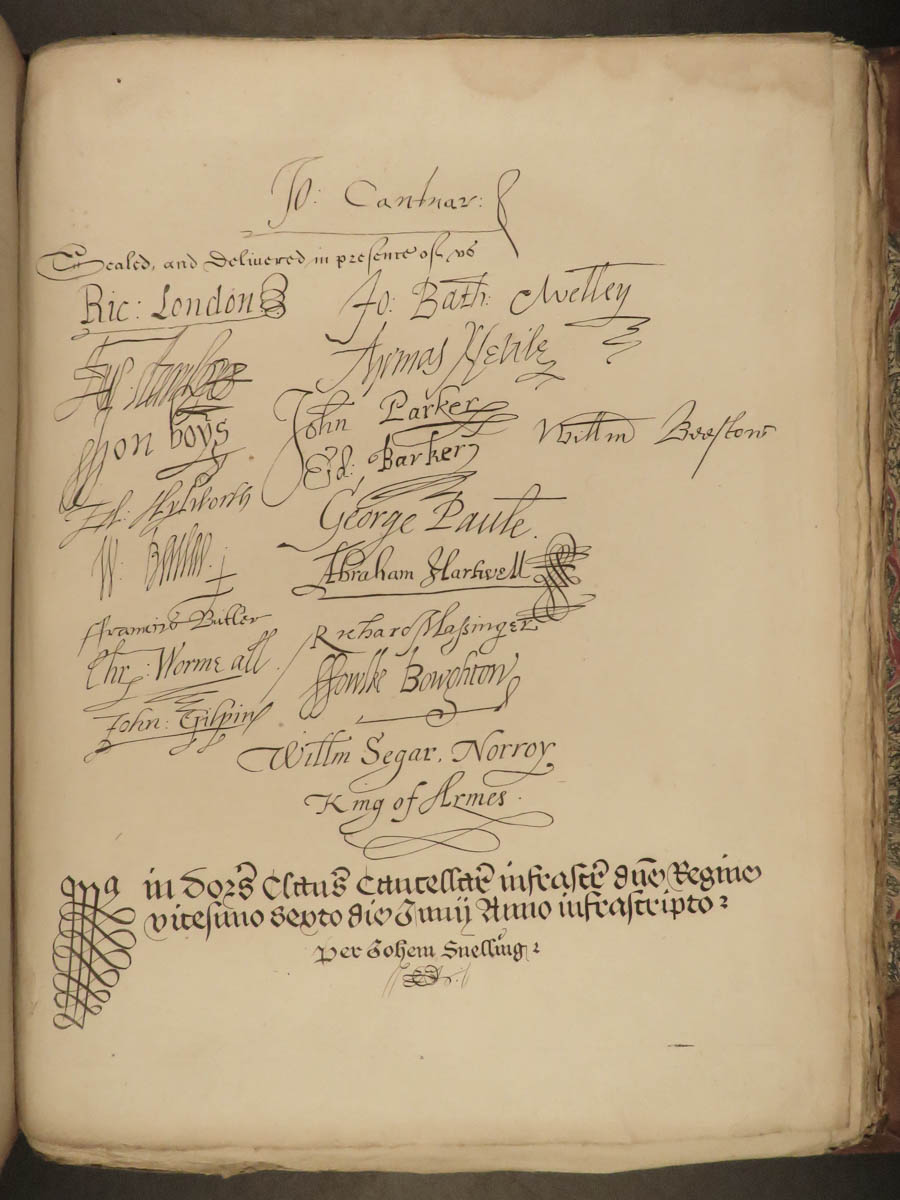 Jo: Cantuar:
Sealed, and Delivered, in presente of, us
Ric: London
Jo: Bath: Welley
John Parker
Willm Beeston
Jhon boys
Ed: Barker
George Paule.
W:
Abraham Hartwell
Francis Butler
Richard Massinger
Chr: Worme all.
ffowlke Boughton
John: Gilpin
Willm Segar, Norroy
King of Armes.
in dors Claus Cancellar infrascr dne Regine
vicesimo sexto die Junij Anno infrascripto
per Johem Snelling